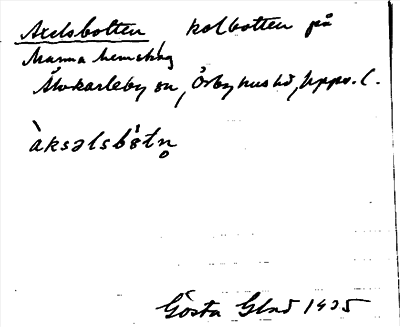 Axelsbotten, kolbotten på
Marma hemskog
Älvkarleby sn, Örbyhus hd, Upps. l.
àksəlsbòtn̥
Gösta Glad 1935